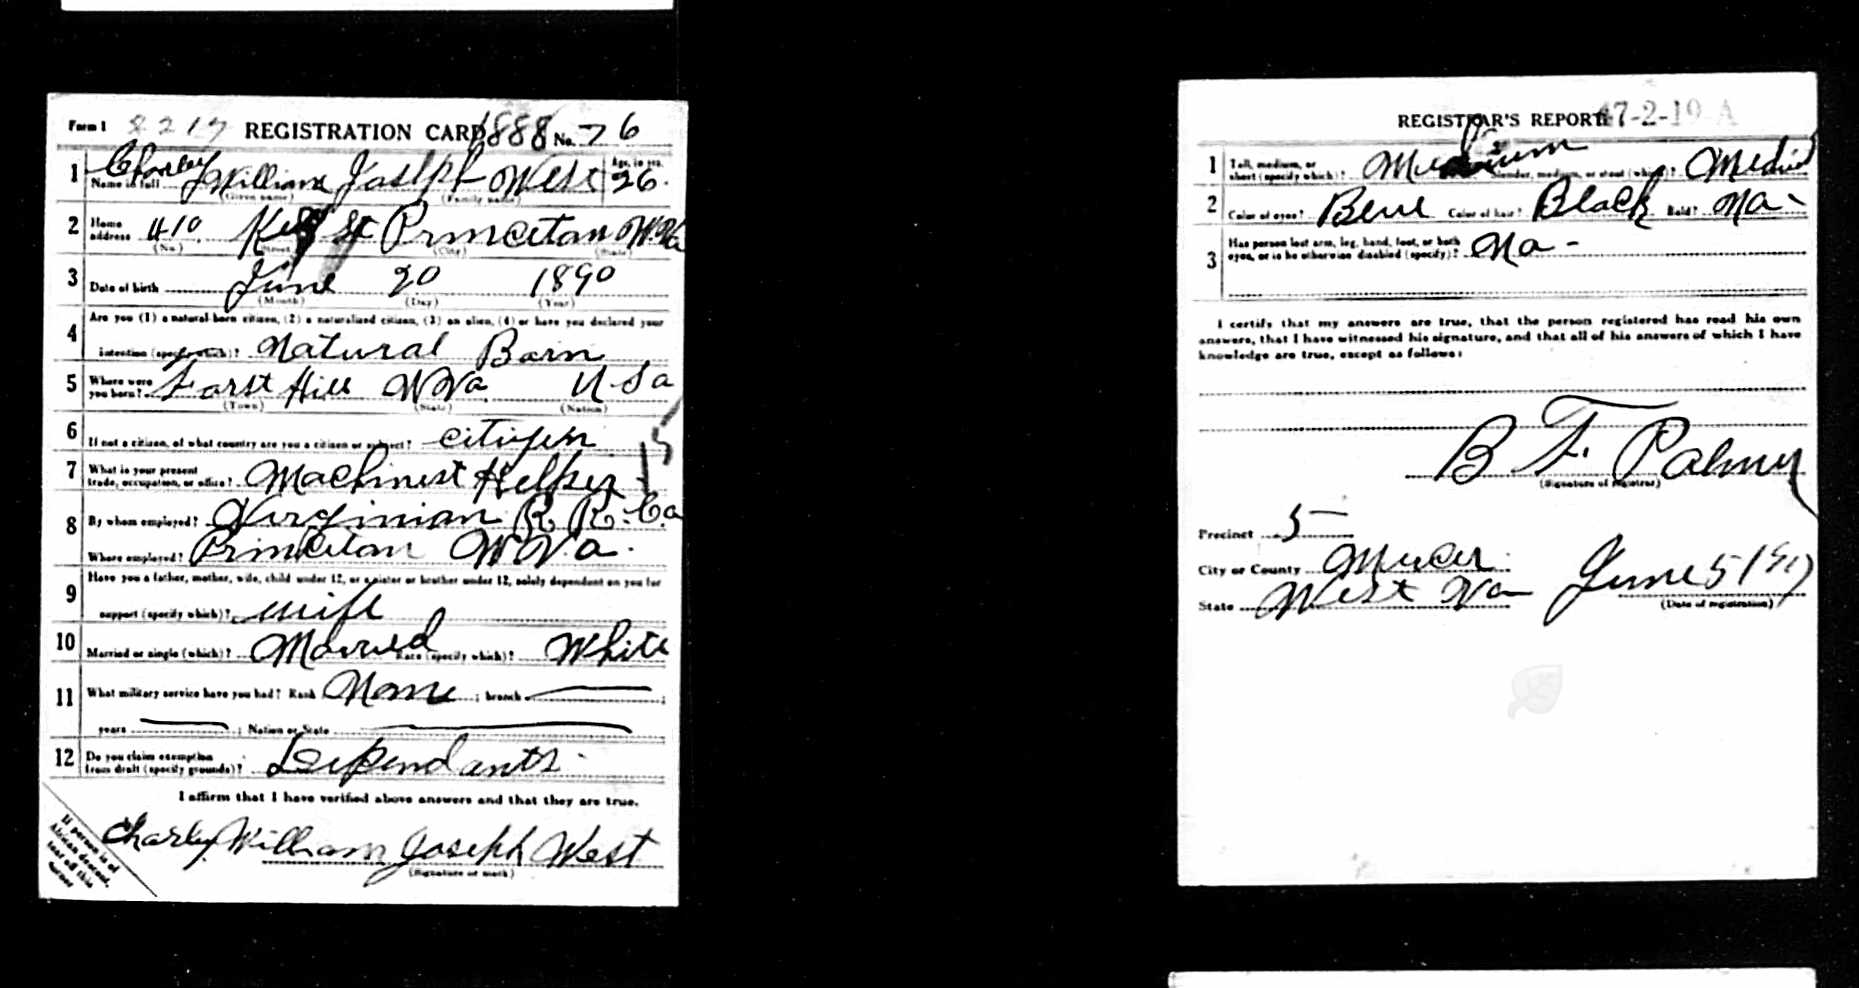 Form 1 2217 REGISTRATION CARD 1888 No. 76
1 Name in full Charley William Joseph West Age, in yrs. 26
(Given name) (Family name)
2 Home address 410 St Princeton W.Va
(No.) (Street) (City) (State)
3 Date of birth June 20 1890
(Month) (Day) (Year)
4 Are you (1) a natural-born citizen, (2) a naturalized citizen, (3) an alien, (4) or have you declared your
intention (specify which)? Natural Born
5 Where were you born? Forst Hill W Va. U S a
(Town) (State) (Nation)
6 If not a citizen, of what country are you a citizen or subject? citizen
7 What is your present trade, occupation, or office? Machinest Helper 15
8 By whom employed? Virginian R. R. Co
Where employed? Princeton W Va.
9 Have you a father, mother, wife, child under 12, or a sister or brother under 12, solely dependent on you for
support (specify which)? wife
10 Married or single (which)? Married Race (specify which)? White
11 What military service have you had? Rank None ; branch ;
years ; Nation or State
12 Do you claim exemption from draft (specify grounds)? Dependants
I affirm that I have verified above answers and that they are true.
Charley William Joseph West
(Signature or mark)
If person is of
African descent,
tear off this
corner
REGISTRAR'S REPORT 47-2-19-A
1 Tall, medium, or short (specify which)? Medium Slender, medium, or stout (which)? Medium
2 Color of eyes? Blue Color of hair? Black Bald? No -
3 Has person lost arm, leg, hand, foot, or both
eyes, or is he otherwise disabled (specify)? No -
I certify that my answers are true, that the person registered has read his own
answers, that I have witnessed his signature, and that all of his answers of which I have
knowledge are true, except as follows:
B F. Palmer
(Signature of registrar)
Precinct 5
City or County Mercer
State West Va June 5 1917
(Date of registration)